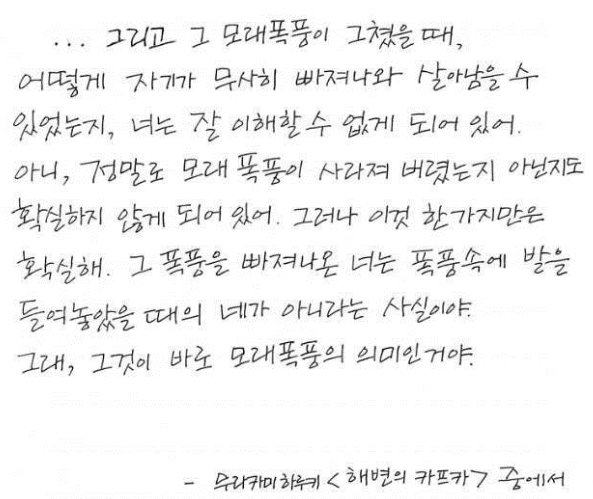 ... 그리고 그 모래폭풍이 그쳤을 때,
어떻게 자기가 무사히 빠져나와 살아남을 수
있었는지, 너는 잘 이해할 수 없게 되어 있어.
아니, 정말로 모래 폭풍이 사라져 버렸는지 아닌지도
확실하지 않게 되어 있어. 그러나 이것 한가지만은
확실해. 그 폭풍을 빠져나온 너는 폭풍속에 발을
들여놓았을 때의 네가 아니라는 사실이야.
그래, 그것이 바로 모래폭풍의 의미인거야.
- 무라카미하루키 <해변의 카프카> 중에서